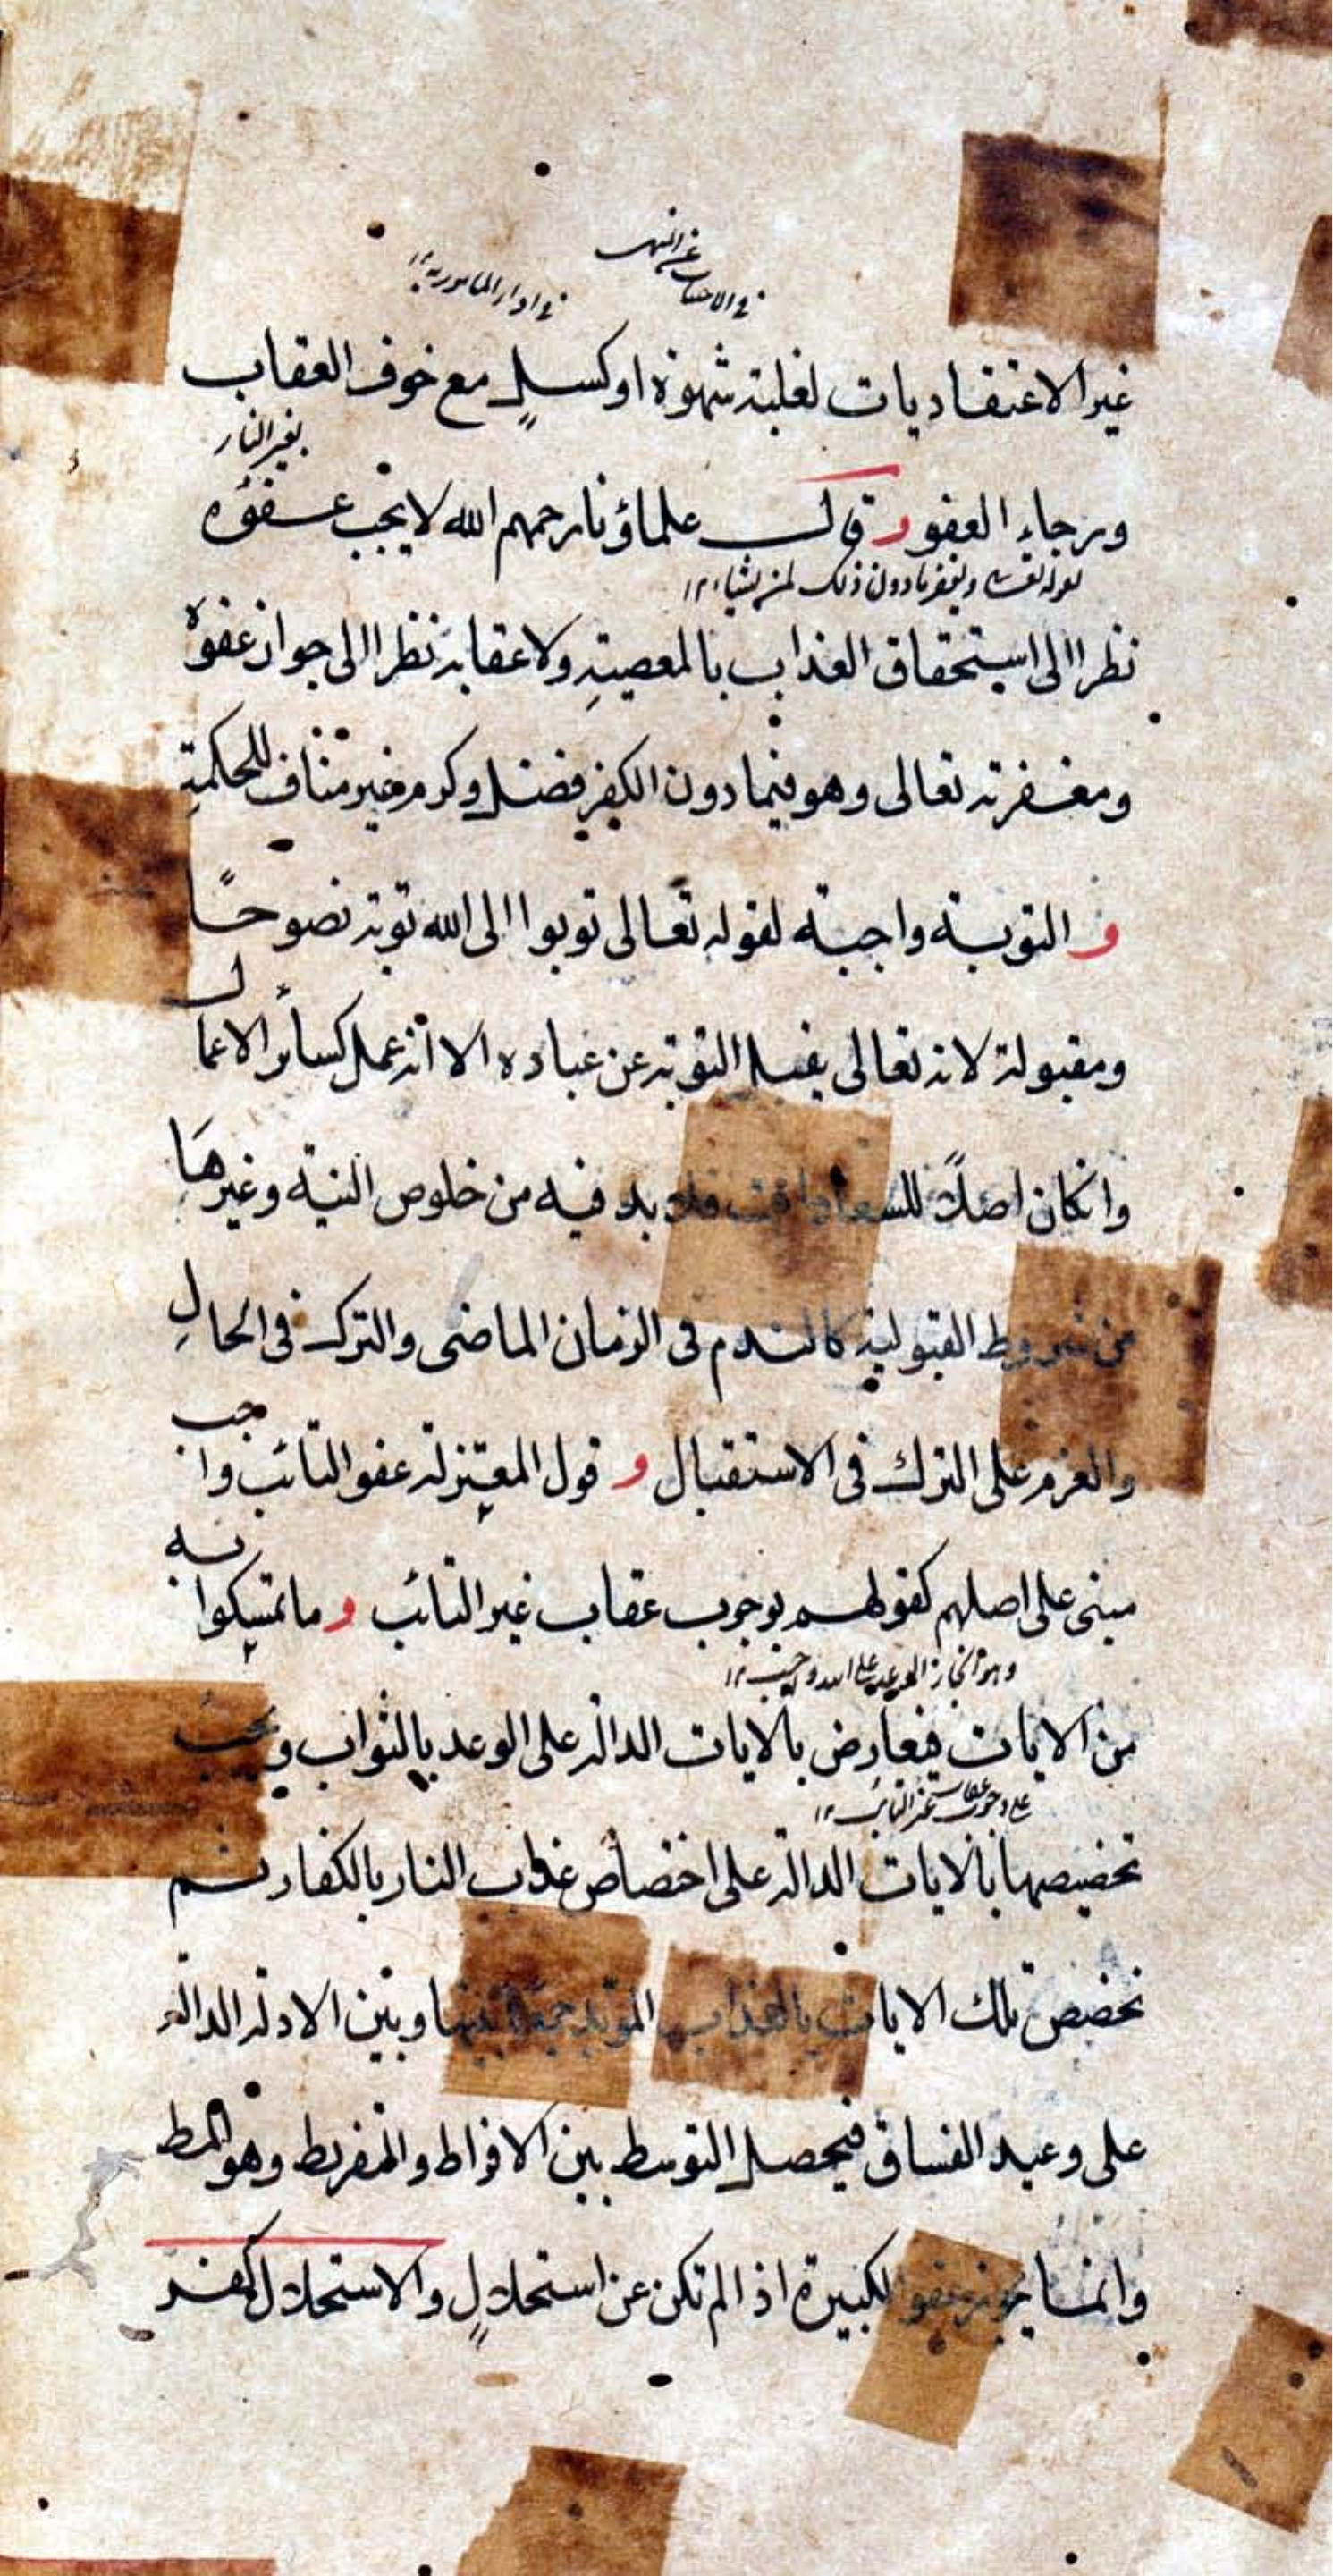 في الاجتناب عن المنهيات
في اداء المامور به ١٢
غير الاعتقاديات لغلبة شهوة او كسل مع خوف العقاب
بغير النار
ورجاء العفو و قال علماؤنا رحمهم الله لا يجب عفوه
لقوله تعالى ويغفر ما دون ذلك لمن يشاء ١٢
نظرا الى استحقاق العذاب بالمعصية ولا عقابه نظرا الى جواز عفوه
ومغفرته تعالى وهو فيما دون الكفر فضل وكرم غير مناف للحكمة
و التوبة واجبة لقوله تعالى توبوا الى الله توبة نصوحًا
ومقبولة لانه تعالى يقبل التوبة عن عباده الا انه عمل كسائر الاعمال
وانكان اصلاً للسعادات فلا بد فيه من خلوص النية وغيرها
من شروط القبولية كالندم فى الزمان الماضى والترك فى الحال
والعزم على الترك فى الاستقبال و قول المعتزلة عفو التائب واجب
مبنى على اصلهم كقولهم بوجوب عقاب غير التائب و ما تمسكوا به
وهو انجاز الوعيد على الله واجب ١٢
من الايات فيعارض بالايات الدالة على الوعد بالثواب ويجب
على وجوب عقاب غير التائب ١٢
تخصيصها بالايات الدالة على اختصاص عذاب النار بالكفار ثم
تخصص تلك الايات بالعذاب المؤبد جمعا بينها وبين الادلة الدالة
على وعيد الفساق فيحصل التوسط بين الافراط والتفريط وهو المط
وانما يجوز عفو الكبيرة اذا لم تكن عن استحلال والاستحلال كفر